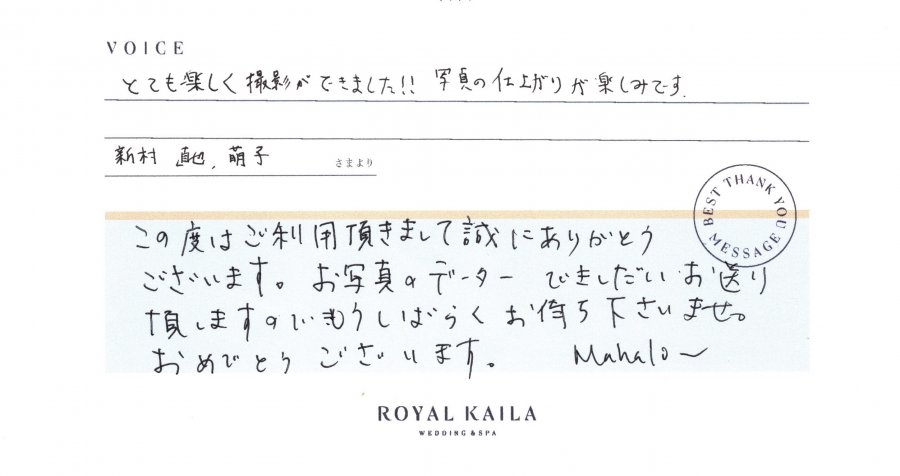 VOICE
とても楽しく撮影ができました!! 写真の仕上がりが楽しみです。
新村 直也、萌子 さまより
BEST THANK YOU MESSAGE
この度はご利用頂きまして誠にありがとう
ございます。お写真のデーター できしだいお送り
頂しますのでもうしばらくお待ち下さいませ。
おめでとうございます。 Mahalo~
ROYAL KAILA
WEDDING & SPA